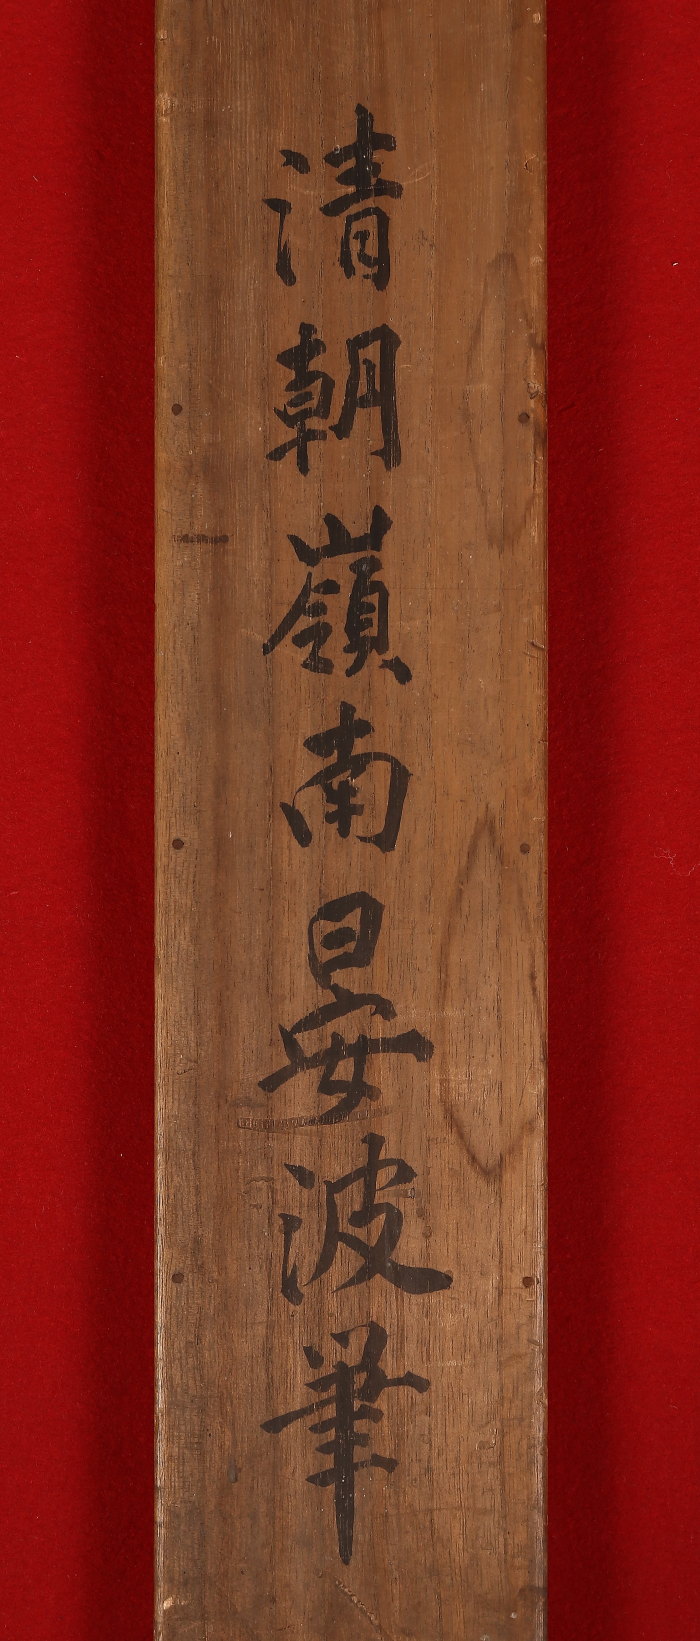 清朝嶺南晏波筆